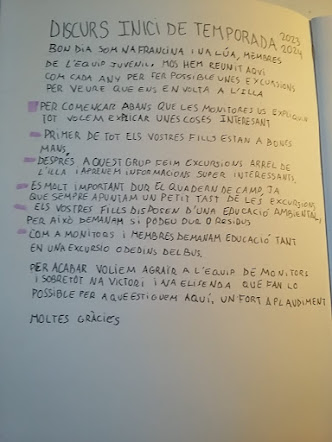 DISCURS INICI DE TEMPORADA 2023
2024
BON DIA SOM NA FRANCINA I NA LÚA, MEMBRES
DE L'EQUIP JUVENIL. MOS HEM REUNIT AQUÍ
COM CADA ANY PER FER POSSIBLE UNES EXCURSIONS
PER VEURE QUE ENS EN VOLTA A L'ILLA
PER COMENÇAR ABANS QUE LES MONITORES US EXPLIQUIN
TOT VOLEM EXPLICAR UNES COSES INTERESANT
PRIMER DE TOT ELS VOSTRES FILLS ESTAN A BONES
MANS,
DESPRÉS AQUEST GRUP FEIM EXCURSIONS ARREL DE
L'ILLA I APRENEM INFORMACIONS SUPER INTERÈSSANTS.
ES MOLT IMPORTANT DUR EL QUADERN DE CAMP, JA
QUE SEMPRE APUNTAM UN PETIT TAST DE LES EXCURSIONS
ELS VOSTRES FILLS DISPOSEN D'UNA EDUCACIÓ AMBIENTAL,
PER AIXÒ DEMANAM SI PODEU DUR 0 RESIDUS
COM A MONITORS I MEMBRES DEMANAM EDUCACIÓ TANT
EN UNA EXCURSIO O DEDINS DEL BUS.
PER ACABAR VOLÍEM AGRAIR A L'EQUIP DE MONITORS
I SOBRETOT NA VICTORI I NA ELISENDA QUE FAN LO
POSSIBLE PER A QUE ESTIGUEM AQUÍ, UN FORT APLAUDIMENT
MOLTES GRÀCIES